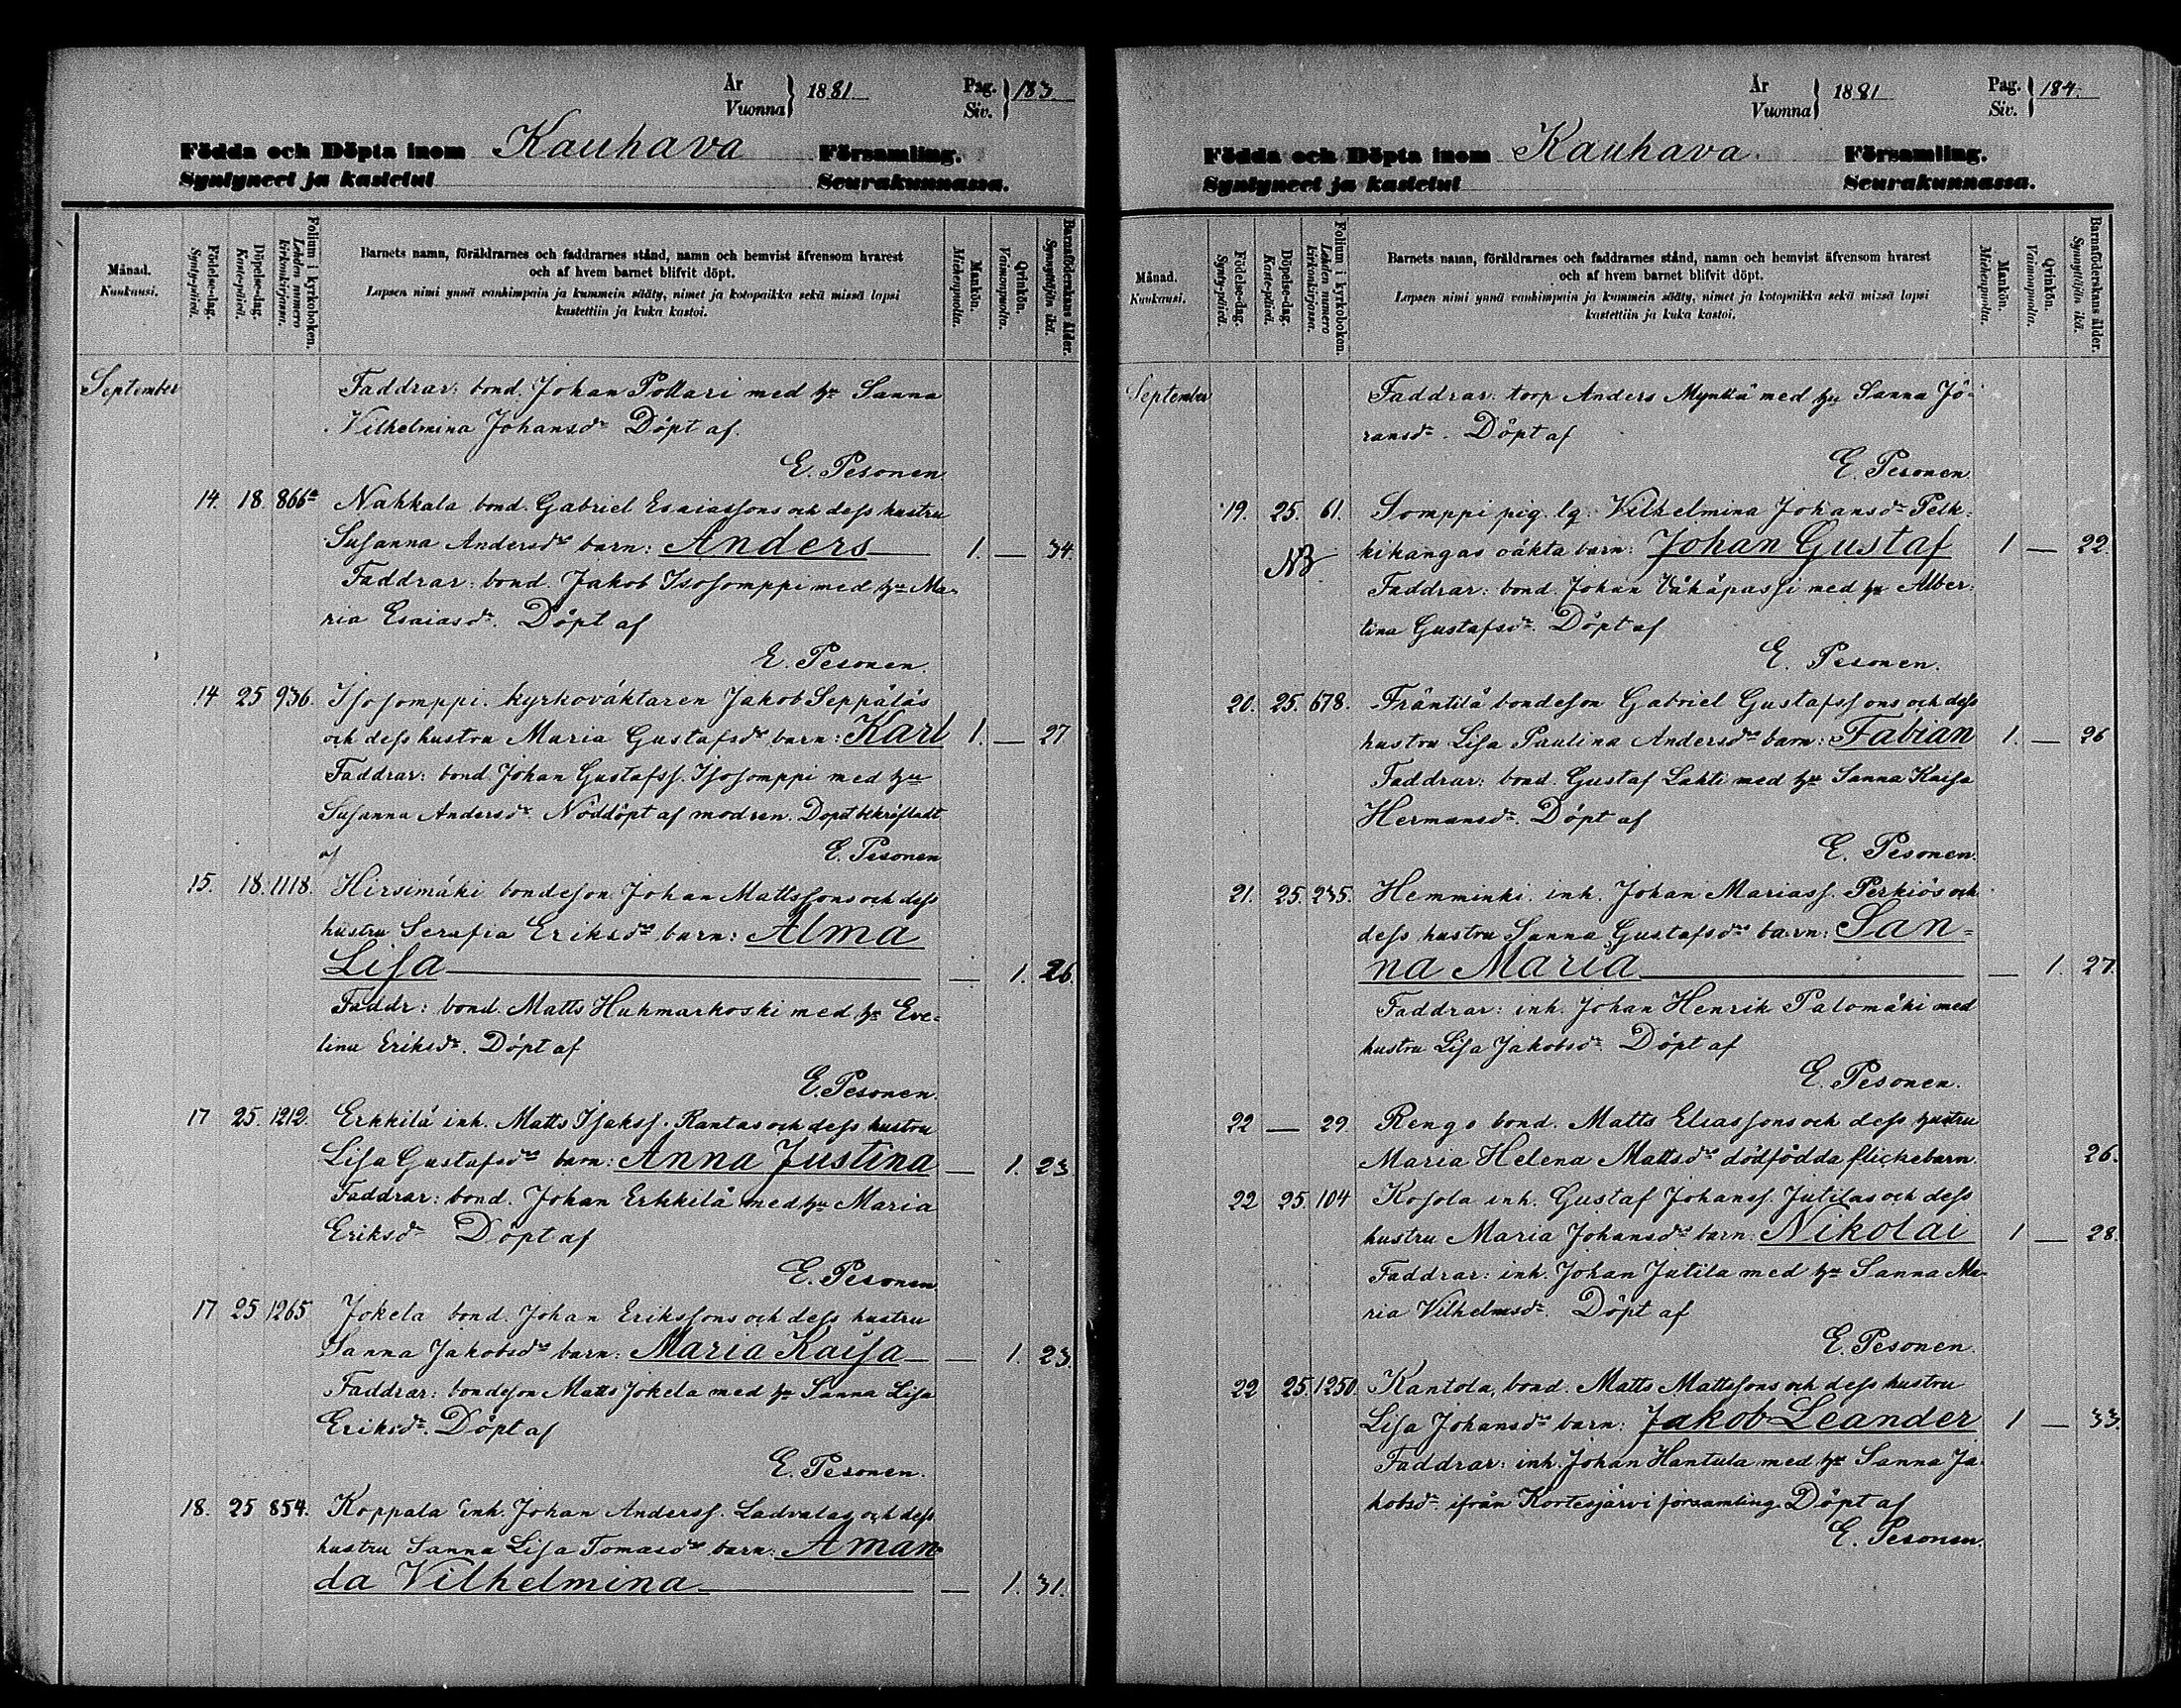 År
Vuonna } 1881
Pag.
Siv. } 183
Födda och Döpta inom Kauhava Församling.
Syntyneet ja kastetut Seurakunnassa.
Månad.
Kuukausi.
Födelse-dag.
Synty-päivä.
Döpelse-dag.
Kaste-päivä.
Folium i kyrkoboken.
Lehden numero
kirkonkirjassa.
Barnets namn, föräldrarnes och faddrarnes stånd, namn och hemvist äfvensom hvarest
och af hvem barnet blifvit döpt.
Lapsen nimi ynnä vanhimpain ja kummein sääty, nimet ja kotopaikka sekä missä lapsi
kastettiin ja kuka kastoi.
Mankön.
Miehenpuolia.
Qvinkön.
Vaimonpuolia.
Barnaföderskans ålder.
Synnyttäjän ikä.
September Faddrar: bond. Johan Pollari med hu Sanna
Vilhelmina Johansdr Döpt af.
E. Pesonen
14. 18. 866a Nahkala bond. Gabriel Esaiassons och dess hustru
Susanna Andersdrs barn: Anders 1. — 34.
Faddrar: bond. Jakob Isosomppi med hu Ma-
ria Esaiasdr. Döpt af
E. Pesonen.
14 25 936. Isosomppi. kyrkoväktaren Jakob Seppäläs
och dess hustru Maria Gustafsdrs barn: Karl 1. — 27
Faddrar: bond. Johan Gustafss. Isosomppi med hu
Susanna Andersdr. Nöddöpt af modren. Dopet bekräftadt
af E. Pesonen
15. 18. 1118. Hirsimäki bondeson Johan Mattssons och dess
hustru Serafia Eriksdrs barn: Alma
Lisa — 1. 26.
Faddr: bond. Matts Huhmarkoski med hu Eve-
lina Eriksdr. Döpt af
E. Pesonen.
17 25. 1212. Erkkilä inh. Matts Isakss. Rantas och dess hustru
Lisa Gustafsdrs barn: Anna Justina — 1. 23
Faddrar: bond. Johan Erkkilä med hu Maria
Eriksdr Döpt af
E. Pesonen
17 25 1265. Jokela bond. Johan Erikssons och dess hustru
Sanna Jakobsdrs barn: Maria Kaisa — 1. 23.
Faddrar: bondeson Matts Jokela med hu Sanna Lisa
Eriksdr. Döpt af
E. Pesonen.
18. 25 854. Koppala inh. Johan Anderss. Ladvalas och dess
hustru Sanna Lisa Tomasdrs barn: Aman-
da Vilhelmina — 1. 31.
År
Vuonna } 1881
Pag.
Siv. } 184.
Födda och Döpta inom Kauhava. Församling.
Syntyneet ja kastetut Seurakunnassa.
Månad.
Kuukausi.
Födelse-dag.
Synty-päivä.
Döpelse-dag.
Kaste-päivä.
Folium i kyrkoboken.
Lehden numero
kirkonkirjassa.
Barnets namn, föräldrarnes och faddrarnes stånd, namn och hemvist äfvensom hvarest
och af hvem barnet blifvit döpt.
Lapsen nimi ynnä vanhimpain ja kummein sääty, nimet ja kotopaikka sekä missä lapsi
kastettiin ja kuka kastoi.
Mankön.
Miehenpuolia.
Qvinkön.
Vaimonpuolia.
Barnaföderskans ålder.
Synnyttäjän ikä.
September Faddrar: torp Anders Mynttä med hu Sanna Jö-
ransdr. Döpt af
E. Pesonen
19. 25. 61. Somppi pig. lg. Vilhelmina Johansdr Pelk-
NB kikangas oäkta barn: Johan Gustaf 1 — 22.
Faddrar: bond. Johan Vähäpassi med hu Alber-
tina Gustafsdr. Döpt af
E. Pesonen.
20. 25. 678. Fräntilä bondeson Gabriel Gustafssons och dess
hustru Lisa Paulina Andersdrs barn: Fabian 1. — 26
Faddrar: bond. Gustaf Lahti med hu Sanna Kaisa
Hermansdr. Döpt af
E. Pesonen.
21. 25. 235. Hemminki. inh. Johan Mariass. Perkiös och
dess hustru Sanna Gustafsdrs barn: San-
na Maria — 1. 27.
Faddrar: inh. Johan Henrik Palomäki med
hustru Lisa Jakobsdr. Döpt af
E. Pesonen.
22 — 29. Rengo bond. Matts Eliassons och dess hustru
Maria Helena Mattsdrs dödfödda flickebarn. 26.
22 25. 104 Kosola inh. Gustaf Johanss. Jutilas och dess
hustru Maria Johansdrs barn: Nikolai 1 — 28.
Faddrar: inh. Johan Jutila med hu Sanna Ma-
ria Vilhelmsdr. Döpt af
E. Pesonen.
22 25. 1250. Kantola, bond. Matts Mattssons och dess hustru
Lisa Johansdrs barn: Jakob Leander 1 — 33.
Faddrar: inh. Johan Hantula med hu Sanna Ja-
kobsdr. ifrån Kortesjärvi församling. Döpt af
E. Pesonen.